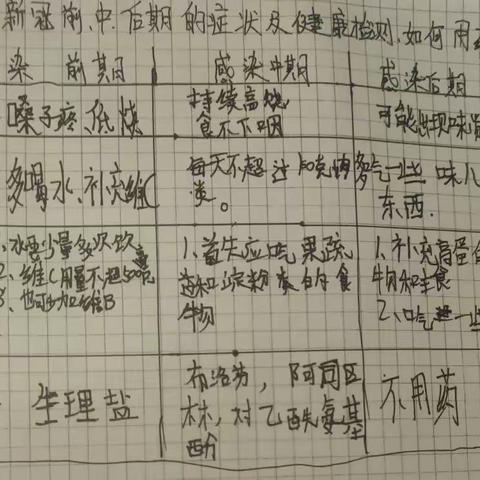 新冠前、中、后期的症状及健康检测、如何用
染前期
感染中期
感染后期
嗓子疼、低烧
持续高烧
食不下咽
可能出现味
多喝水、补充维C
每天不超过50克
类。
吃一些味儿
东西.
1、水要少量多次饮
2、维C用量不超500毫克
3、也可多加维B
1、首先应吃果蔬
和淀粉类的食
物
1、补充高蛋白
物和主食
2、吃一些
生理盐
布洛芬，阿司匹
林，对乙酰氨基
酚
不用药